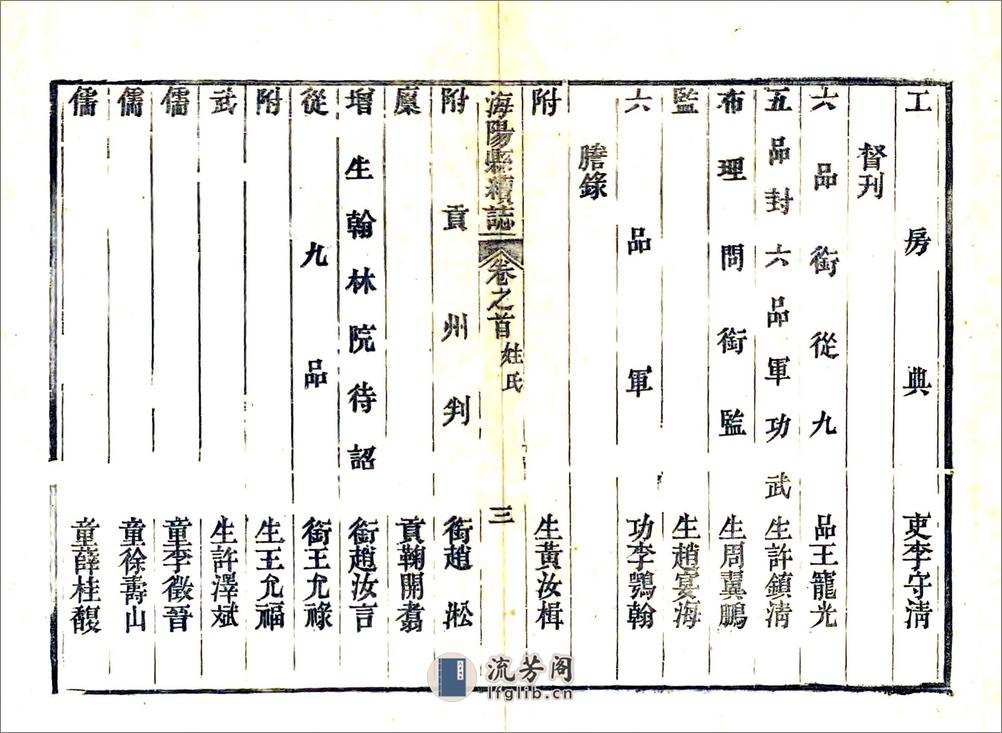 工房典吏李守淸
督刊
六品銜從九品王龍光
五品封六品軍功武生許鎮淸
布理問銜監生周冀鵬
監生趙宴海
六品軍功李鶚翰
謄錄
附生黃汝楫
海陽縣續誌 卷之首 姓氏 三
附貢州判銜趙淞
廩貢鞠開翥
增生翰林院待詔銜趙汝言
從九品銜王允祿
附生王允福
武生許澤斌
儒童李徵晉
儒童徐壽山
儒童薛桂馥
流芳阁
lfglib.cn